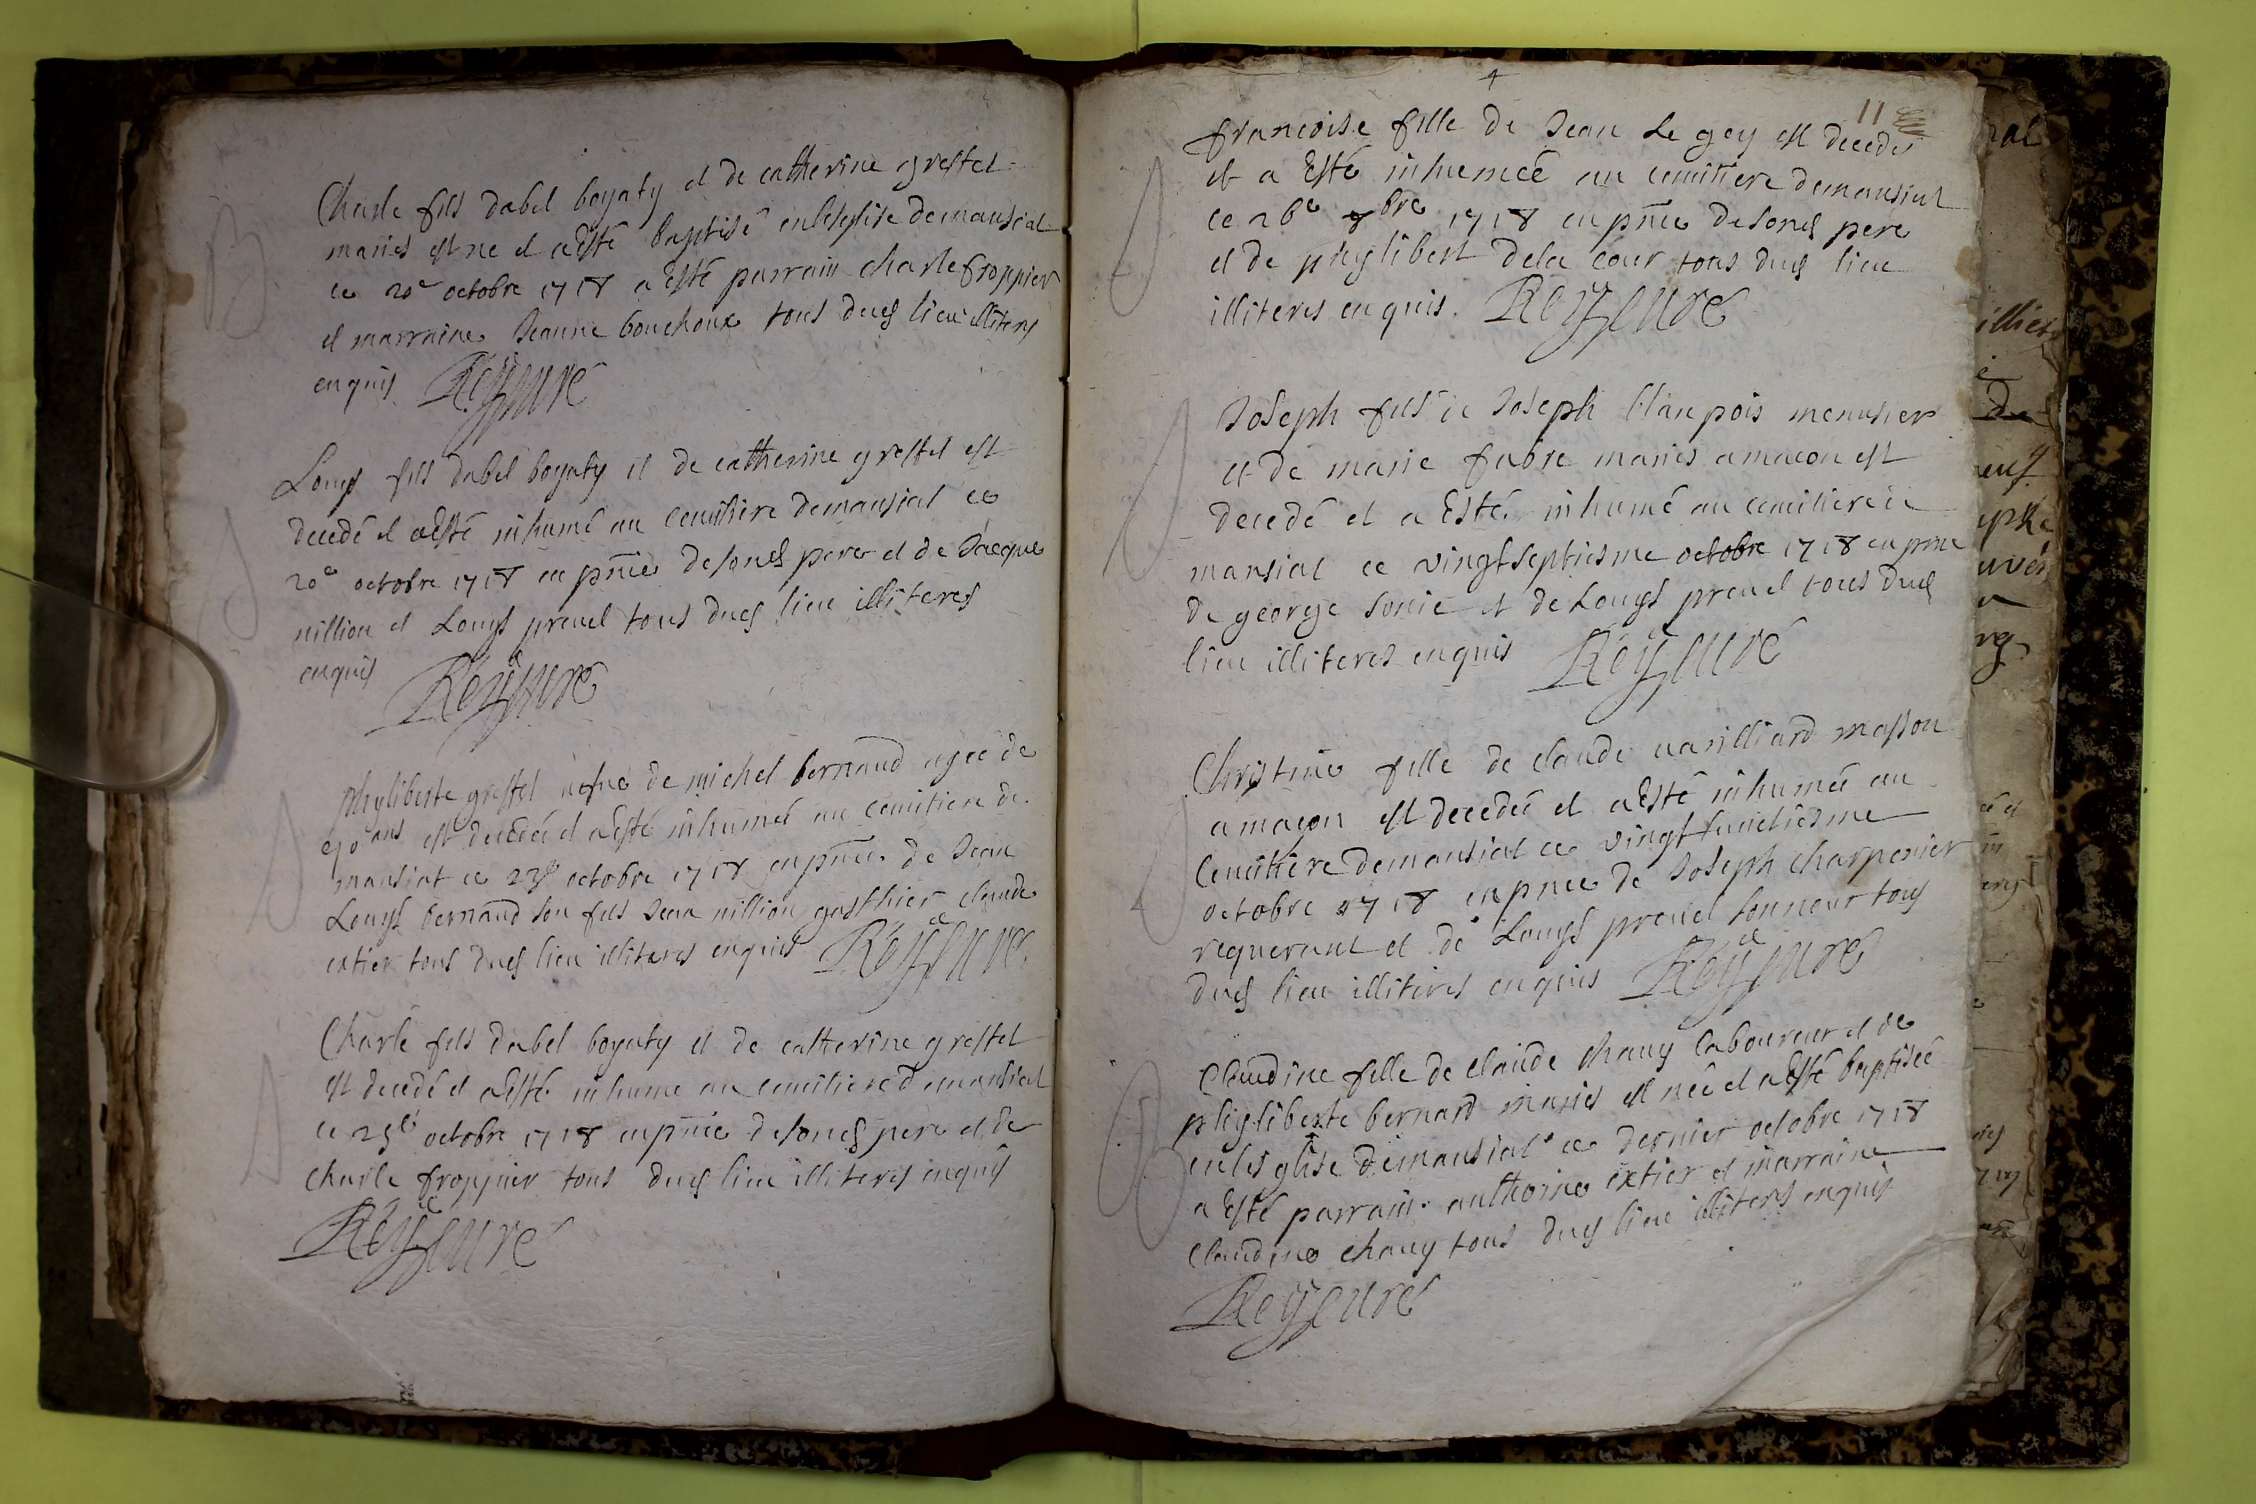 B
Charle fils dabel boyaty et de catherine greffet
mariés est ne et a Esté baptisé en l'esglise de mansiat
ce 20e octobre 1718 a Esté parrain charle froppier
et marraine Jeanne bouchoux tous dud lieu illiteres
enquis Rey curé
Louys fils dabel boyaty et de catherine greffet est
decedé et a Esté inhumé au cemitiere de mansiat ce
20e octobre 1718 en pnce de sond pere et de Jacque
nillion et Louys prevel tous dud lieu illiteres
enquis Rey curé
phyliberte greffet vefve de michel bernand agée de
70 ans est decedée et a Esté inhumée au cemitiere de
mansiat ce 23e octobre 1718 en pnce de Jean
Louys bernand son fils Jean nillion claude
extier tous dud lieu illiteres enquis Rey curé
Charle fils dabel boyaty et de catherine greffet
est decedé et a Esté inhumé au cemitiere de mansiat
ce 25e octobre 1718 en pnce de sond pere et de
Charle froppier tous dud lieu illiteres enquis
Rey curé
4
11
francoise fille de Jean Le gey est decedée
et a Esté inhumée au cemitiere de mansiat
ce 26e 8bre 1718 en pnce de sond pere
et de phylibert dela cour tous dud lieu
illiteres enquis. Rey curé
Joseph fils de Joseph blanpois menusier
et de marie fabre mariés a macon est
decedé et a Esté inhumé au cemitiere de
mansiat ce vingt septiesme octobre 1718 en pnce
de george sonié et de Louys prevel tous dud
lieu illiteres enquis Rey curé
Christine fille de claude varilliard masson
a maçon est decedée et a Esté inhumée au
Cemitiere de mansiat ce vingt huictiesme
octobre 1718 en pnce de Joseph charpenier
requerant et de Louys prevel sonneur tous
dud lieu illiteres enquis Rey curé
B
Claudine fille de claude chavy laboureur et de
phyliberte bernard mariés est née et a Esté baptisée
en lesglise de mansiat ce dernier octobre 1718
a Esté parrain anthoine extier et marraine
Claudine chavy tous dud lieu illiteres enquis
Rey curé